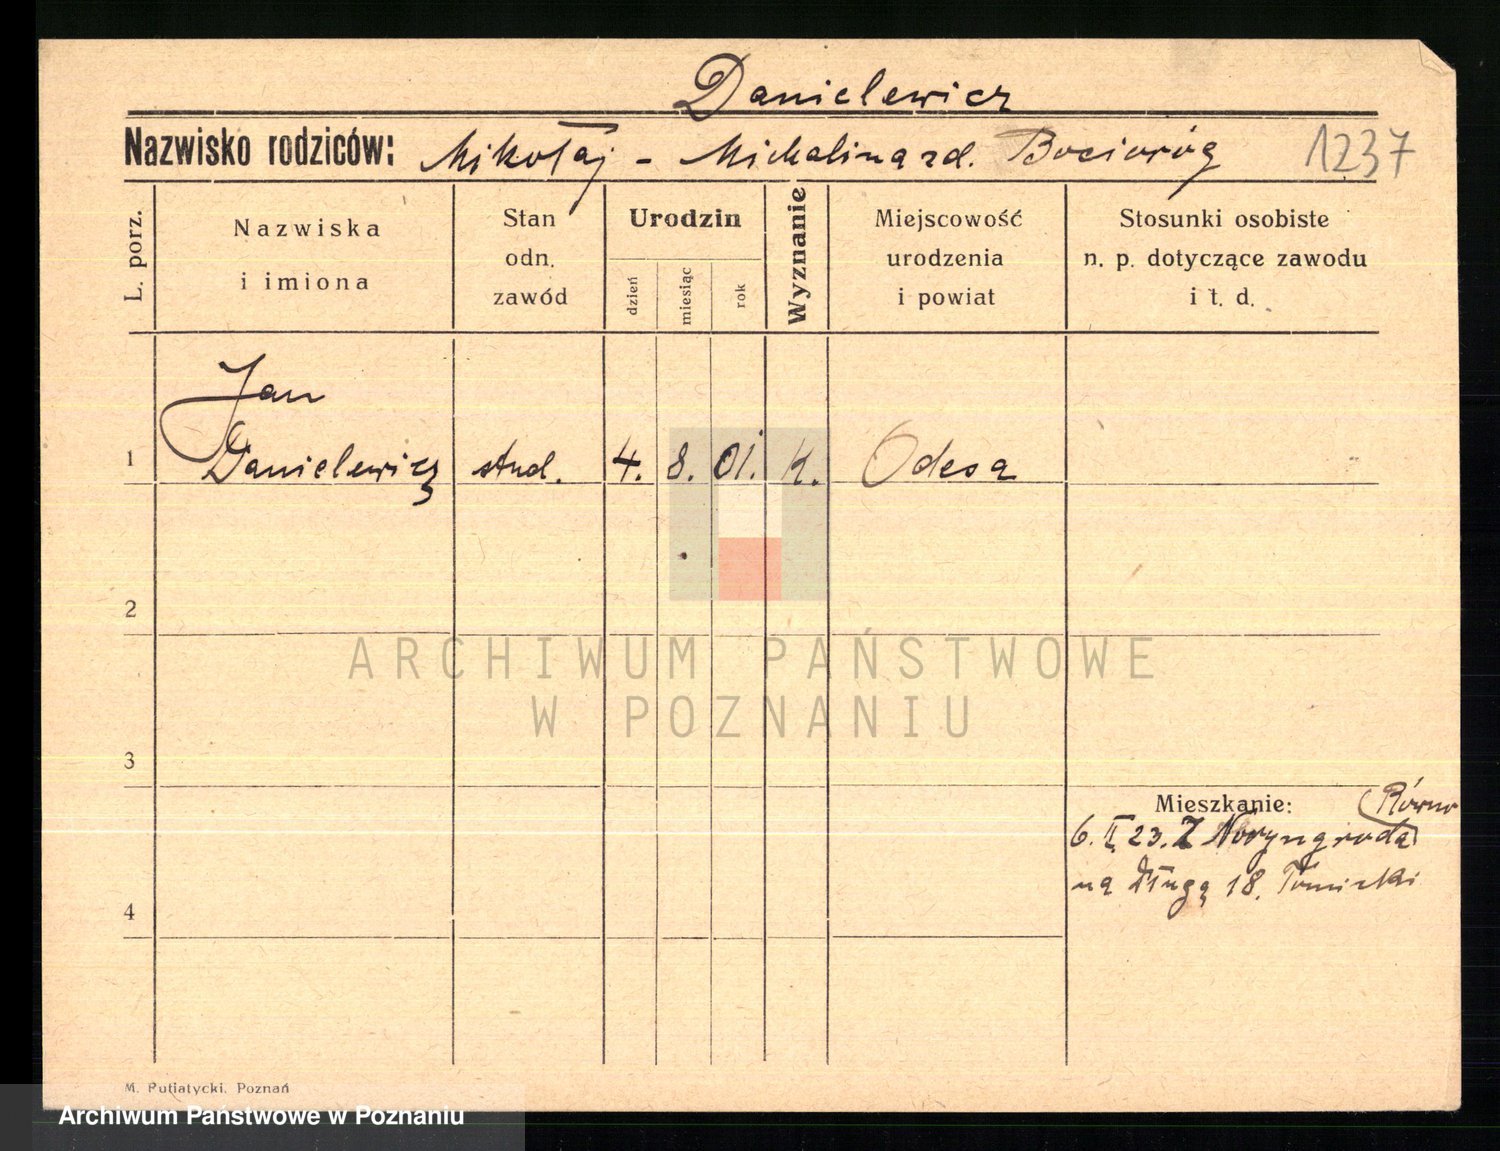 Danielewicz
Nazwisko rodziców: Mikołaj - Michalina zd. Bocioróg 1237
L. porz.
Nazwiska
i imiona
Stan
odn.
zawód
Urodzin
dzień
miesiąc
rok
Wyznanie
Miejscowość
urodzenia
i powiat
Stosunki osobiste
n. p. dotyczące zawodu
i t. d.
Jan
1 Danielewicz stud. 4. 8. 01. k. Odesa
2
ARCHIWUM PAŃSTWOWE
W POZNANIU
3
Mieszkanie: (Równo
6. II 23. Z
4 na Długą 18.
M. Putiatycki, Poznań
Archiwum Państwowe w Poznaniu